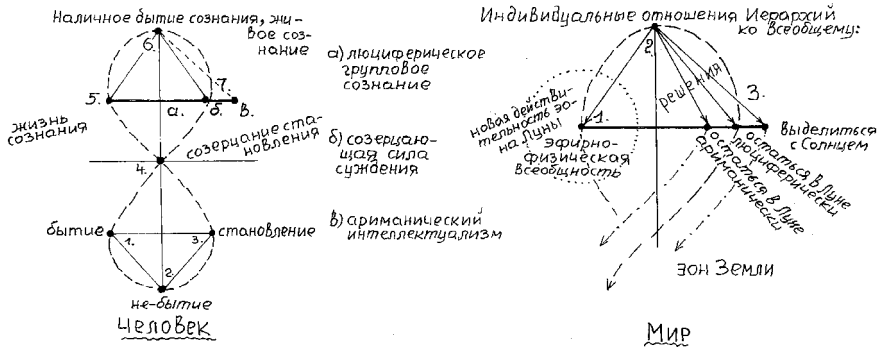 Наличное бытие сознания, жи-
вое со-
знание
6.
7.
5.
а.
б.
в.
жизнь
сознания
созерцание ста-
новления
4.
бытие
1.
3.
становление
2.
не-бытие
Человек
а) люциферическое
групповое
сознание
б) созерцаю-
щая сила
суждения
в) ариманический
интеллектуализм
Индивидуальные отношения Иерархий
ко всеобщему:
2.
3.
решения
1.
новая действи-
тельность эо-
на Луны
эфирно-
физическая
всеобщность
выделиться
с Солнцем
остаться в Луне
люциферически
остаться в Луне
ариманически
эон Земли
Мир